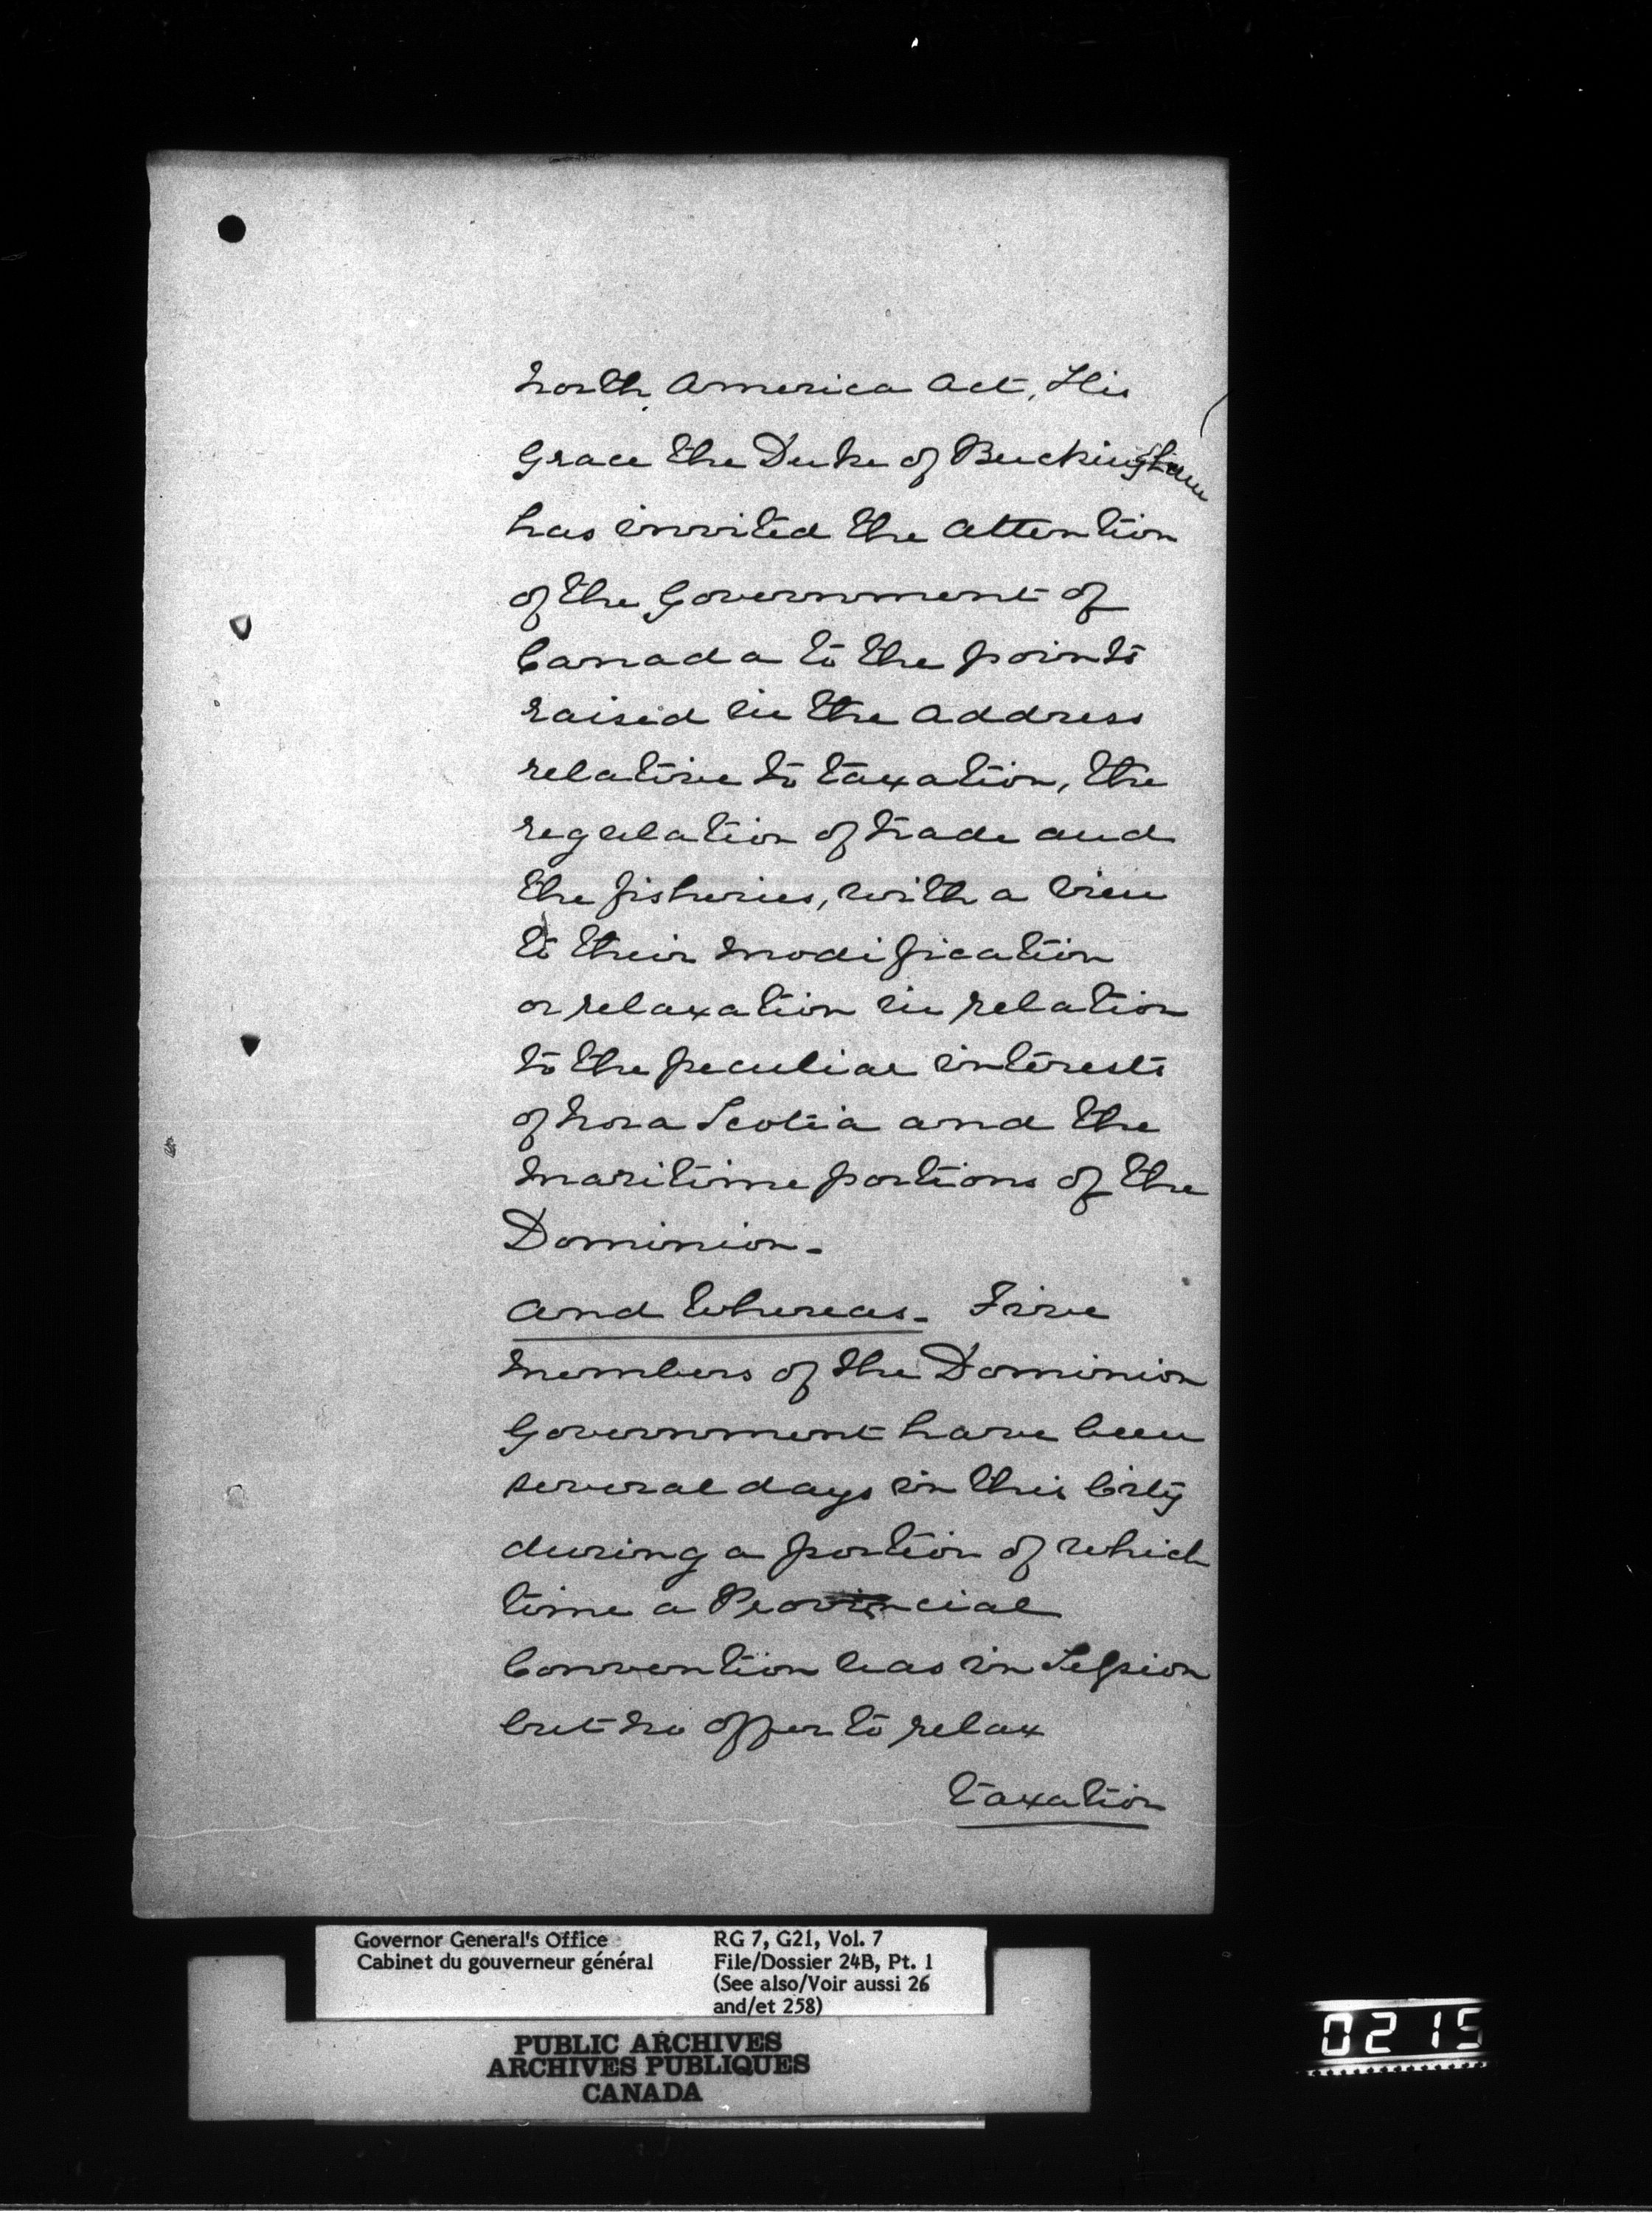 North America Act, His
Grace the Duke of Buckingham
has invited the attention
of the Government of
Canada to the points
raised in the address
relative to taxation, the
regulation of trade and
the fisheries, with a view
to their modification
or relaxation in relation
to the peculiar interests
of Nova Scotia and the
Maritime portions of the
Dominion.
And Whereas. Five
Members of the Dominion
Government have been
several days in this City
during a portion of which
time a Provincial
Convention was in Session
but no offer to relax
taxation
Governor General's Office
Cabinet du gouverneur général
RG 7, G21, Vol. 7
File/Dossier 24B, Pt. 1
(See also/Voir aussi 26
and/et 258)
PUBLIC ARCHIVES
ARCHIVES PUBLIQUES
CANADA
0215